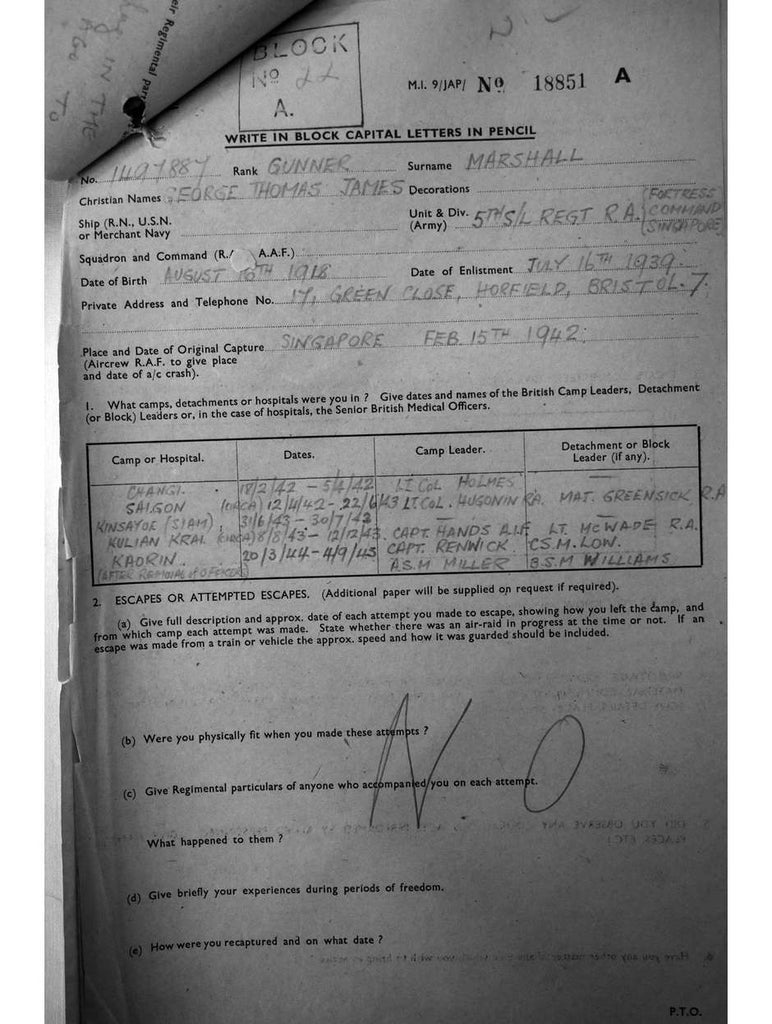 eir Regimental par
IN THE
TO
BLOCK
No 22
A.
M.I. 9/JAP/ No 18851 A
WRITE IN BLOCK CAPITAL LETTERS IN PENCIL
No. 1497887 Rank GUNNER Surname MARSHALL
Christian Names GEORGE THOMAS JAMES Decorations
Ship (R.N., U.S.N. or Merchant Navy
Unit & Div. (Army) 5TH S/L REGT R.A. (FORTRESS COMMAND SINGAPORE)
Squadron and Command (R. A.A.F.)
Date of Birth AUGUST 16TH 1918 Date of Enlistment JULY 16TH 1939.
Private Address and Telephone No. 17, GREEN CLOSE, HORFIELD, BRISTOL. 7.
Place and Date of Original Capture SINGAPORE FEB 15TH 1942.
(Aircrew R.A.F. to give place
and date of a/c crash).
1. What camps, detachments or hospitals were you in ? Give dates and names of the British Camp Leaders, Detachment
(or Block) Leaders or, in the case of hospitals, the Senior British Medical Officers.
Camp or Hospital. Dates. Camp Leader. Detachment or Block Leader (if any).
CHANGI. 18/2/42 - 5/4/42 LT COL HOLMES
SAIGON (CIRCA) 12/4/42 - 22/6/43 LT COL. HUGONIN RA. MAJ. GREENSICK R.A
KINSAYOK (SIAM), 31/6/43 - 30/7/43
KULIAN KRAI (CIRCA) 8/8/43 - 12/12/43. CAPT. HANDS A.I.F LT. McWADE R.A.
KAORIN. 20/3/44 - 4/9/45 CAPT. RENWICK C.S.M. LOW.
(AFTER REMOVAL OF OFFICERS) A.S.M MILLER B.S.M WILLIAMS
2. ESCAPES OR ATTEMPTED ESCAPES. (Additional paper will be supplied on request if required).
(a) Give full description and approx. date of each attempt you made to escape, showing how you left the camp, and
from which camp each attempt was made. State whether there was an air-raid in progress at the time or not. If an
escape was made from a train or vehicle the approx. speed and how it was guarded should be included.
(b) Were you physically fit when you made these attempts ?
N. O
(c) Give Regimental particulars of anyone who accompanied you on each attempt.
What happened to them ?
(d) Give briefly your experiences during periods of freedom.
(e) How were you recaptured and on what date ?
P.T.O.